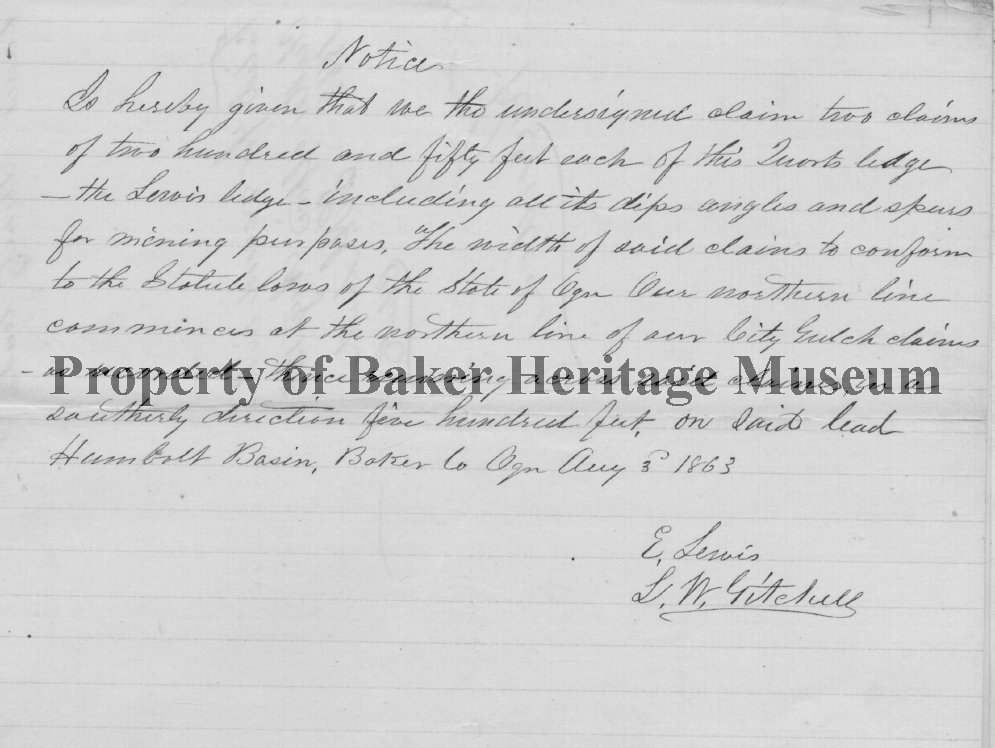 Notice
Is hereby given that we the undersigned claim two claims
of two hundred and fifty feet each of this Quarts ledge
- the Lewis ledge - including all its dips angles and spurs
for mining purposes. The width of said claims to conform
to the Statute laws of the State of Ogn Our northern line
commences at the northern line of our City Gulch claims
- as recorded thence running across said claims in a
Property of Baker Heritage Museum
southerly direction five hundred feet, on said lead
Humbolt Basin, Baker Co Ogn Aug 3d 1863
E. Lewis
L. W. Gitchell